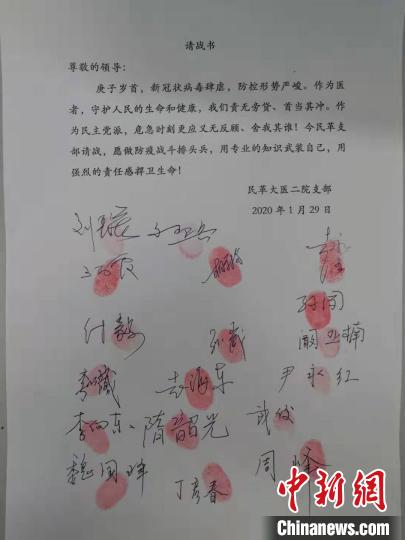 请战书
尊敬的领导：
庚子岁首，新冠状病毒肆虐，防控形势严峻。作为医
者，守护人民的生命和健康，我们责无旁贷、首当其冲。作
为民主党派，危急时刻更应义无反顾、舍我其谁！今民革支
部请战，愿做防疫战斗排头兵，用专业的知识武装自己，用
强烈的责任感捍卫生命！
民革大医二院支部
2020 年 1 月 29 日
付毅
尹永红
李向东、隋韶光
魏国峰 丁彦春 周峰
中新网
WWW.CHINANEWS.COM